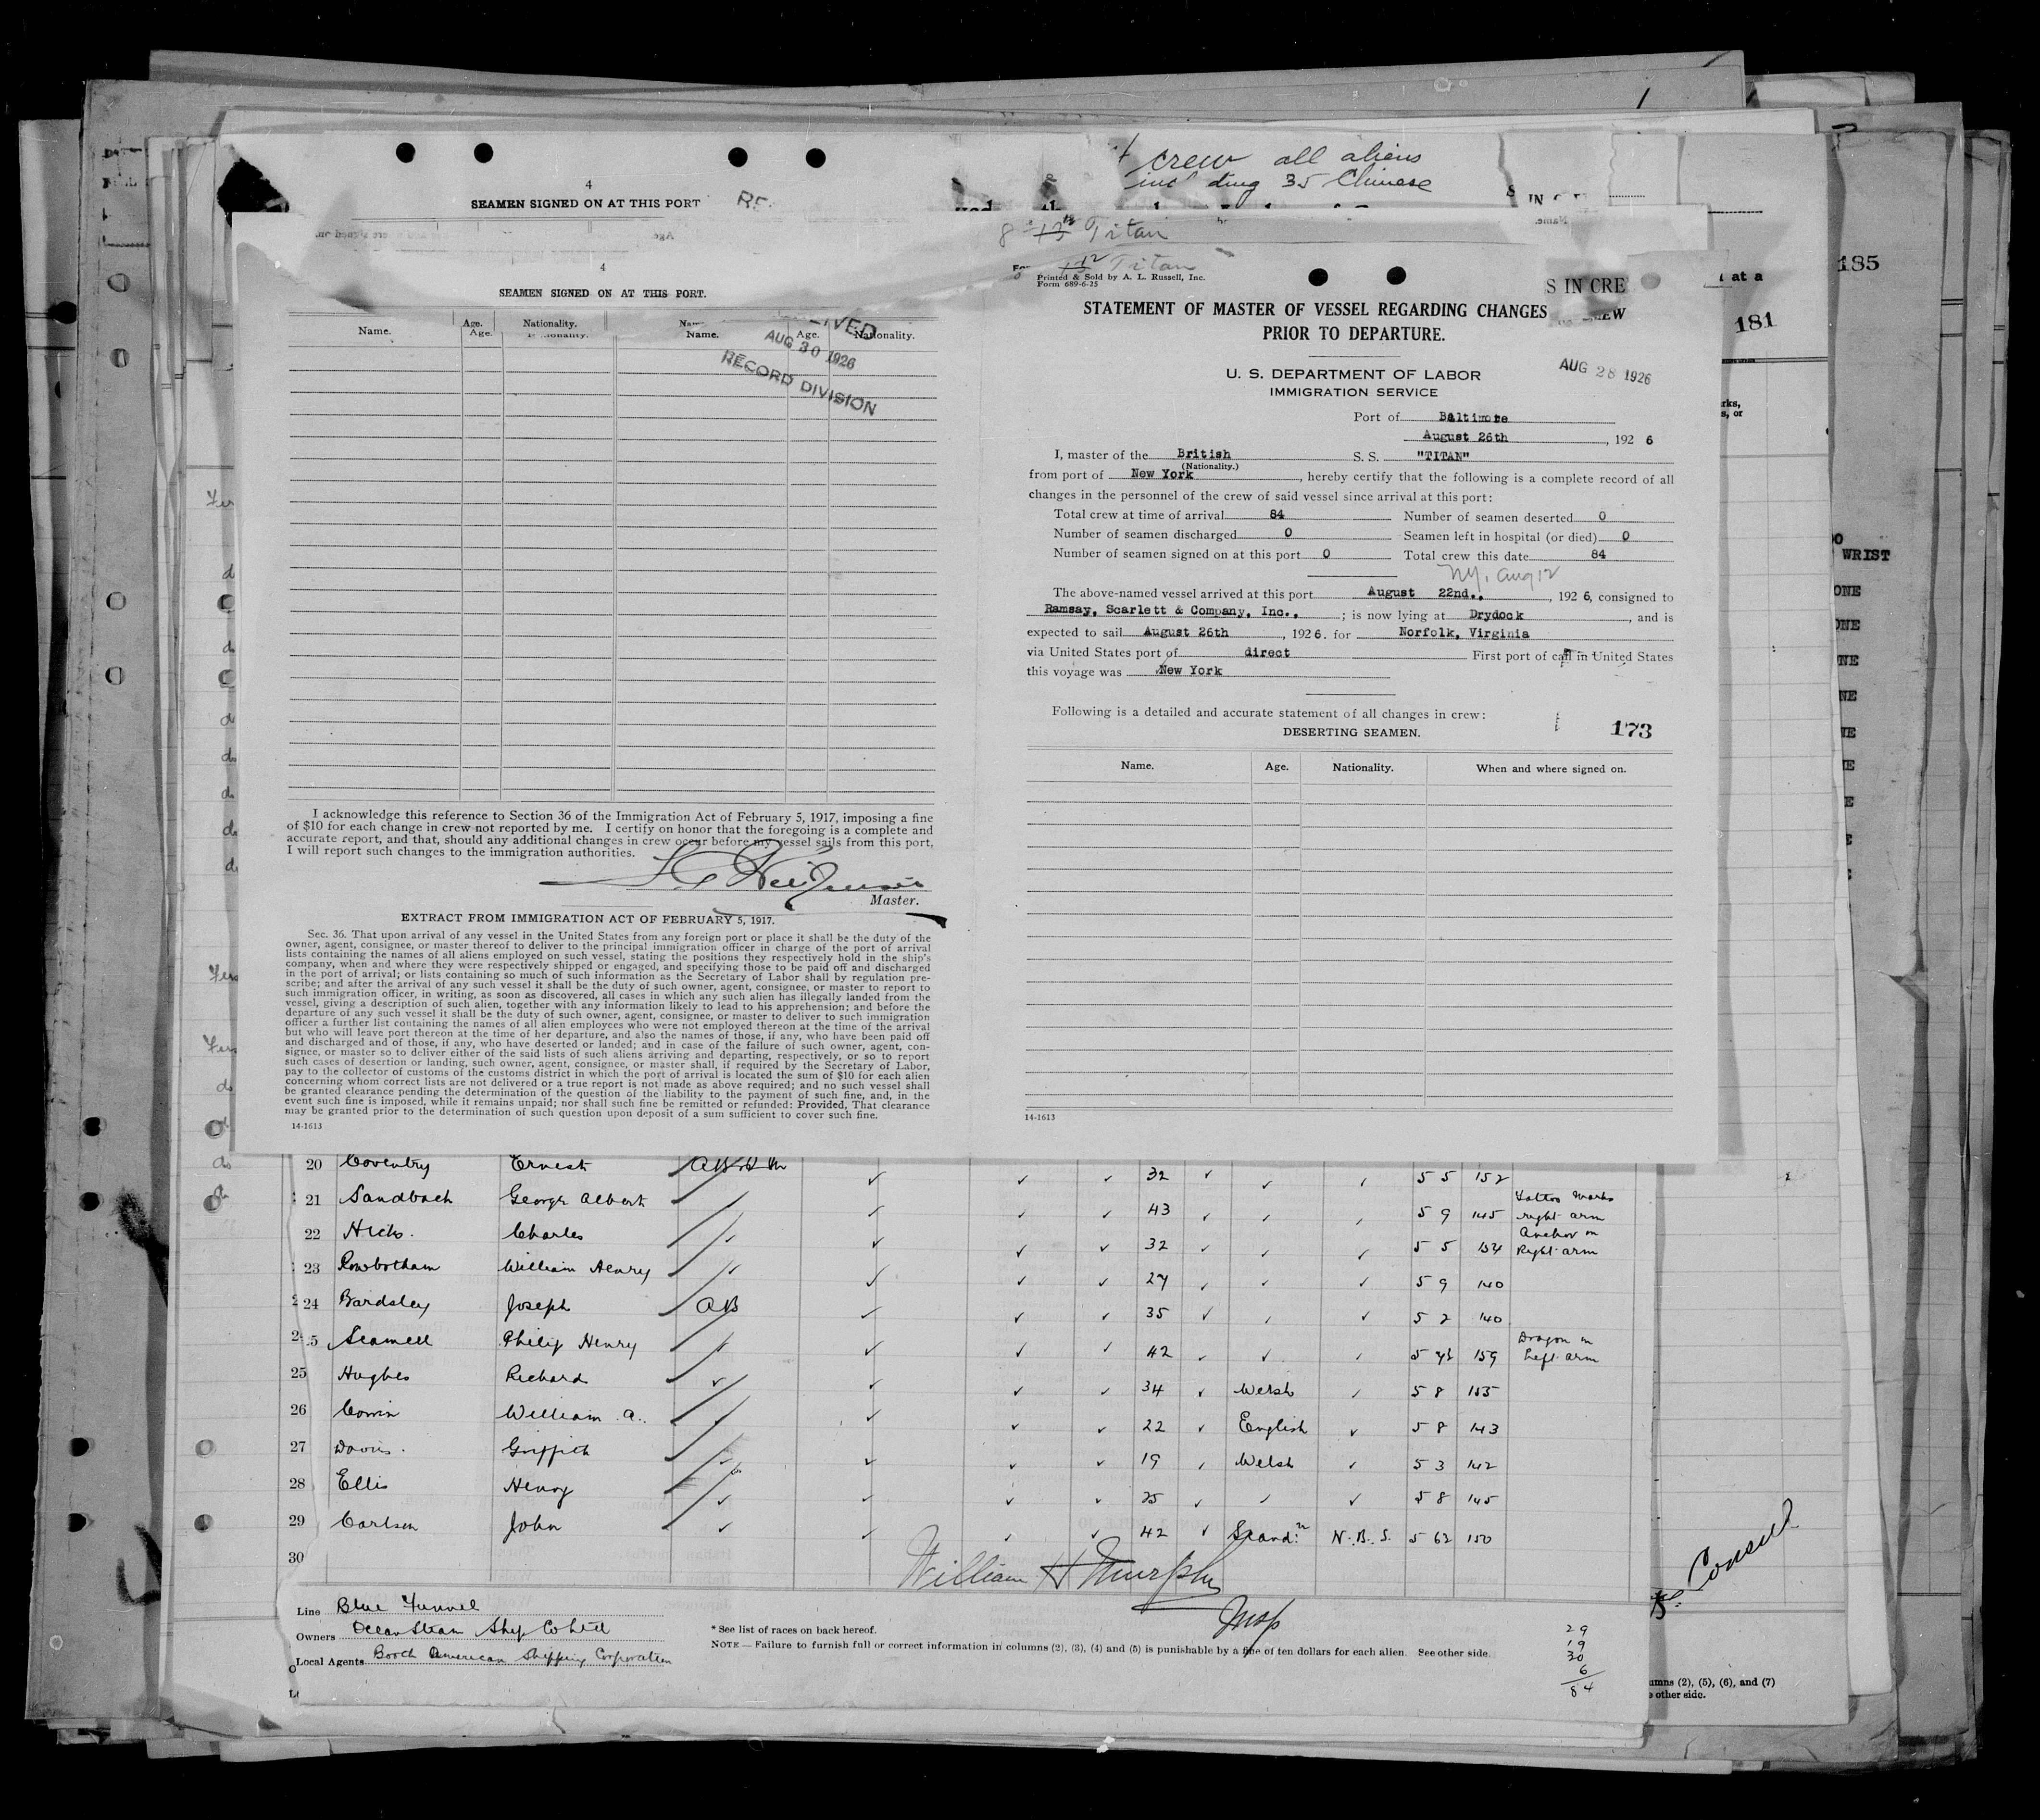 crew all aliens
35 Chinese
4
SEAMEN SIGNED ON AT THIS PORT
185
at a
181
Titan
Titan
4
SEAMEN SIGNED ON AT THIS PORT.
Name. Age. Nationality. Name. Age. Nationality.
AUG 30 1926
RECORD DIVISION
Printed & Sold by A. L. Russell, Inc.
Form 689-6-25
STATEMENT OF MASTER OF VESSEL REGARDING CHANGES
S IN CRE
PRIOR TO DEPARTURE.
U. S. DEPARTMENT OF LABOR
IMMIGRATION SERVICE
AUG 28 1926
Port of Baltimore
August 26th, 1926
I, master of the British S. S. "TITAN"
(Nationality.)
from port of New York, hereby certify that the following is a complete record of all
changes in the personnel of the crew of said vessel since arrival at this port:
Total crew at time of arrival 84 Number of seamen deserted 0
Number of seamen discharged 0 Seamen left in hospital (or died) 0
Number of seamen signed on at this port 0 Total crew this date 84
N.Y. Aug 12
The above-named vessel arrived at this port August 22nd., 1926, consigned to
Ramsay, Scarlett & Company, Inc., ; is now lying at Drydock, and is
expected to sail August 26th, 1926. for Norfolk, Virginia
via United States port of direct First port of call in United States
this voyage was New York
Following is a detailed and accurate statement of all changes in crew:
173
DESERTING SEAMEN.
Name. Age. Nationality. When and where signed on.
14-1613
I acknowledge this reference to Section 36 of the Immigration Act of February 5, 1917, imposing a fine
of $10 for each change in crew not reported by me. I certify on honor that the foregoing is a complete and
accurate report, and that, should any additional changes in crew occur before my vessel sails from this port,
I will report such changes to the immigration authorities.
Master.
EXTRACT FROM IMMIGRATION ACT OF FEBRUARY 5, 1917.
Sec. 36. That upon arrival of any vessel in the United States from any foreign port or place it shall be the duty of the
owner, agent, consignee, or master thereof to deliver to the principal immigration officer in charge of the port of arrival
lists containing the names of all aliens employed on such vessel, stating the positions they respectively hold in the ship's
company, when and where they were respectively shipped or engaged, and specifying those to be paid off and discharged
in the port of arrival; or lists containing so much of such information as the Secretary of Labor shall by regulation pre-
scribe; and after the arrival of any such vessel it shall be the duty of such owner, agent, consignee, or master to report to
such immigration officer, in writing, as soon as discovered, all cases in which any such alien has illegally landed from the
vessel, giving a description of such alien, together with any information likely to lead to his apprehension; and before the
departure of any such vessel it shall be the duty of such owner, agent, consignee, or master to deliver to such immigration
officer a further list containing the names of all alien employees who were not employed thereon at the time of the arrival
but who will leave port thereon at the time of her departure, and also the names of those, if any, who have been paid off
and discharged and of those, if any, who have deserted or landed; and in case of the failure of such owner, agent, con-
signee, or master so to deliver either of the said lists of such aliens arriving and departing, respectively, or so to report
such cases of desertion or landing, such owner, agent, consignee, or master shall, if required by the Secretary of Labor,
pay to the collector of customs of the customs district in which the port of arrival is located the sum of $10 for each alien
concerning whom correct lists are not delivered or a true report is not made as above required; and no such vessel shall
be granted clearance pending the determination of the question of the liability to the payment of such fine, and, in the
event such fine is imposed, while it remains unpaid; nor shall such fine be remitted or refunded: Provided, That clearance
may be granted prior to the determination of such question upon deposit of a sum sufficient to cover such fine.
14-1613
WRIST
20 Coventry Ernest 32 5 5 152
21 Sandbach George Albert 43 5 9 145 Tattoo Marks right arm
22 Hicks. Charles 32 5 5 154 Anchor on Right arm
23 Rowbotham William Henry 27 5 9 140
24 Bardsley Joseph AB 35 5 2 140
Scamell Philip Henry 42 159 Dragon on Left arm
25 Hughes Richard 34 Welsh 5 8 155
26 Cowin William A. 22 English 5 8 143
27 Davis. Griffith 19 Welsh 5 3 142
28 Ellis Henry 25 5 8 145
29 Carlsen John 42 Scand.n N.B.S. 5 6½ 150
30
William H Murphy
Insp
Consul
Line Blue Funnel
Owners Ocean Steam Ship Co Ltd
Local Agents Booth American Shipping Corporation
* See list of races on back hereof.
NOTE — Failure to furnish full or correct information in columns (2), (3), (4) and (5) is punishable by a fine of ten dollars for each alien. See other side.
29
19
30
6
84
umns (2), (5), (6), and (7)
other side.